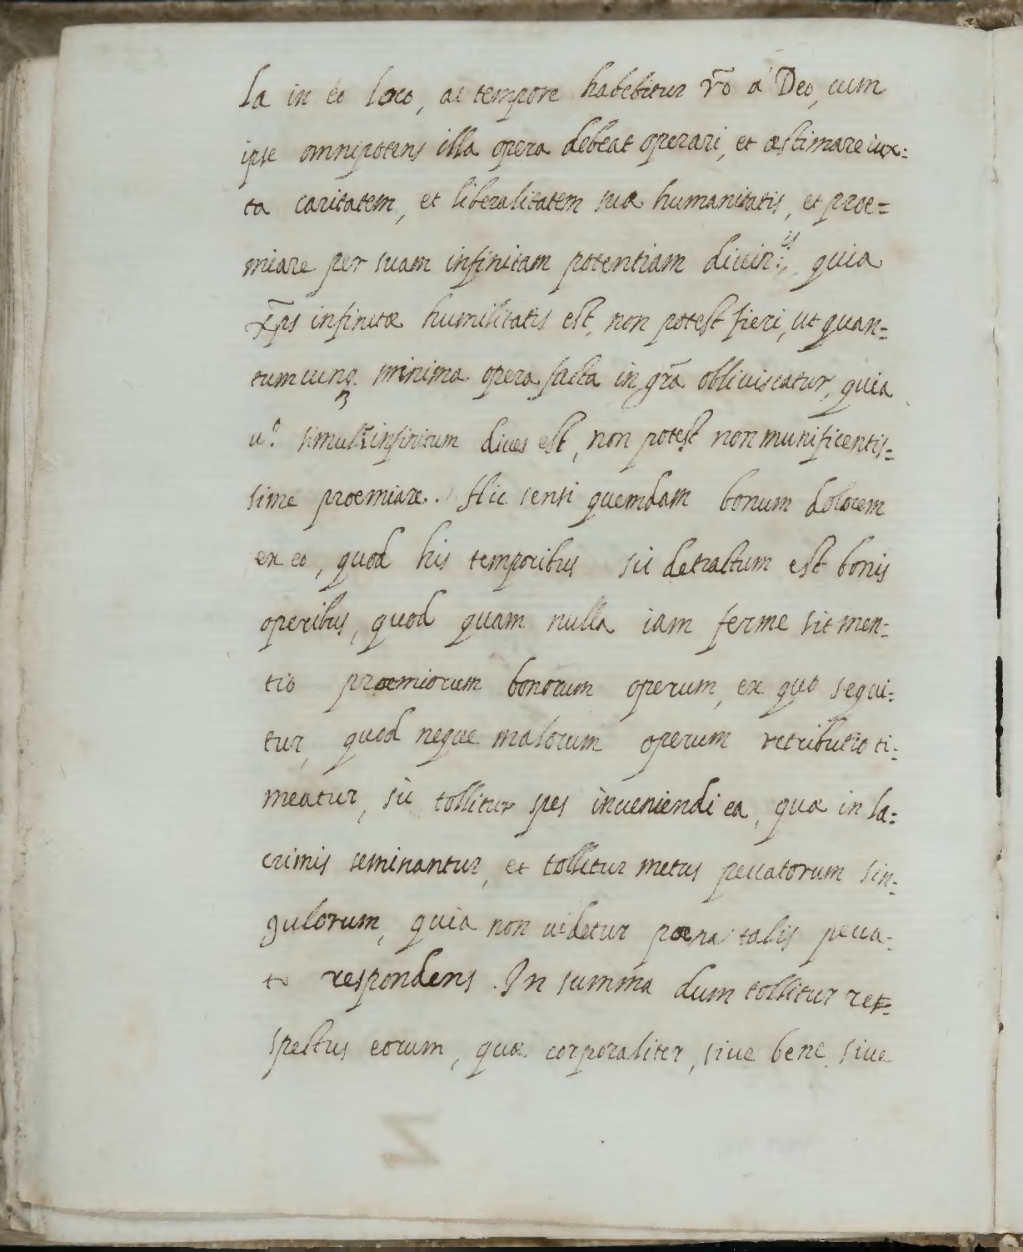 la in eo loco, ac tempore habebitur rõ a Deo, cum
ipse omnipotens illa opera debeat operari, et æstimare iux=
ta caritatem, et liberalitatem suæ humanitatis, et proe=
miare per suam infinitam potentiam quia
x̃ps infinitæ humilitatis est, non potest fieri, ut quan=
tumcunq3 minima opera facta in grã obliviscatur, quia
u.º simul infinitum dives est, non potest non munificentis=
sime proemiare. Hic sensi quemdam bonum dolorem
ex eo, quod his temporibus sic detractum est bonis
operibus, quod quam nulla iam ferme sit men=
tio proemiorum bonorum operum, ex quo sequi=
tur, quod neque malorum operum retributio ti=
meatur, sic tollitur spes inveniendi ea, quæ in la=
crimis seminantur, et tollitur metus peccatorum sin=
gulorum, quia non uidetur poena talis pecca=
to respondens. In summa dum tollitur re=
spectus eorum, quæ corporaliter, siue bene, siue